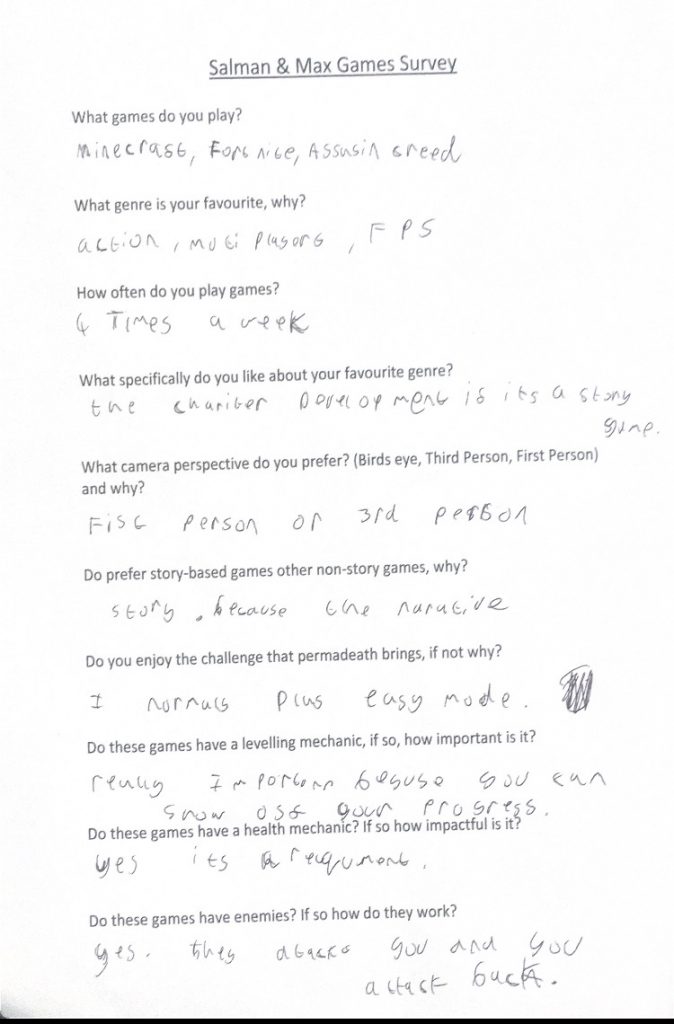 Salman & Max Games Survey
What games do you play?
Minecraft, Fortnite, Assasin creed
What genre is your favourite, why?
action, multi playors, FPS
How often do you play games?
4 Times a week
What specifically do you like about your favourite genre?
the chariter Development if its a story
game.
What camera perspective do you prefer? (Birds eye, Third Person, First Person)
and why?
Fist person or 3rd person
Do prefer story-based games other non-story games, why?
story. because the narative
Do you enjoy the challenge that permadeath brings, if not why?
I normaly play easy mode.
Do these games have a levelling mechanic, if so, how important is it?
really Importann becuse you can
show off your progress.
Do these games have a health mechanic? If so how impactful is it?
yes its a requrment.
Do these games have enemies? If so how do they work?
yes. they attacks you and you
attack back.